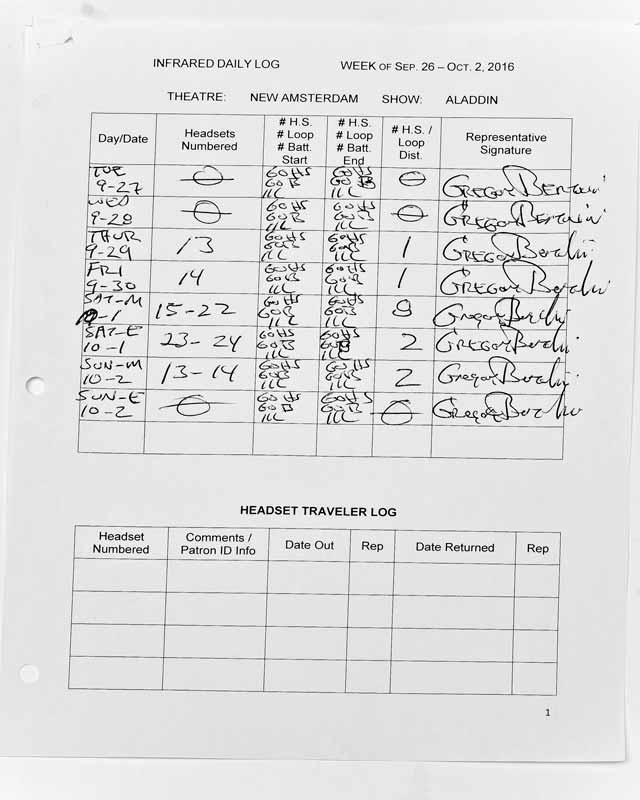 INFRARED DAILY LOG WEEK OF SEP. 26 – OCT. 2, 2016
THEATRE: NEW AMSTERDAM SHOW: ALADDIN
Day/Date
Headsets
Numbered
# H.S.
# Loop
# Batt.
Start
# H.S.
# Loop
# Batt.
End
# H.S. /
Loop
Dist.
Representative
Signature
TUE
9-27
60HS
60B
1LL
60HS
60B
1LL
GREGOR
WED
9-28
60HS
60B
1LL
60HS
60B
1LL
GREGOR
THUR
9-29
13
60HS
60B
1LL
60HS
60B
1LL
1
GREGOR
FRI
9-30
14
60HS
60B
1LL
60HS
60B
1LL
1
GREGOR
SAT-M
10-1
15-22
60HS
60B
1LL
60HS
60B
1LL
8
Gregor
SAT-E
10-1
23-24
60HS
60B
1LL
60HS
60B
2
GREGOR
SUN-M
10-2
13-14
60HS
60B
1LL
60HS
60B
1LL
2
Gregor
SUN-E
10-2
60HS
1LL
60HS
60B
1LL
Gregor
HEADSET TRAVELER LOG
Headset
Numbered
Comments /
Patron ID Info
Date Out
Rep
Date Returned
Rep
1